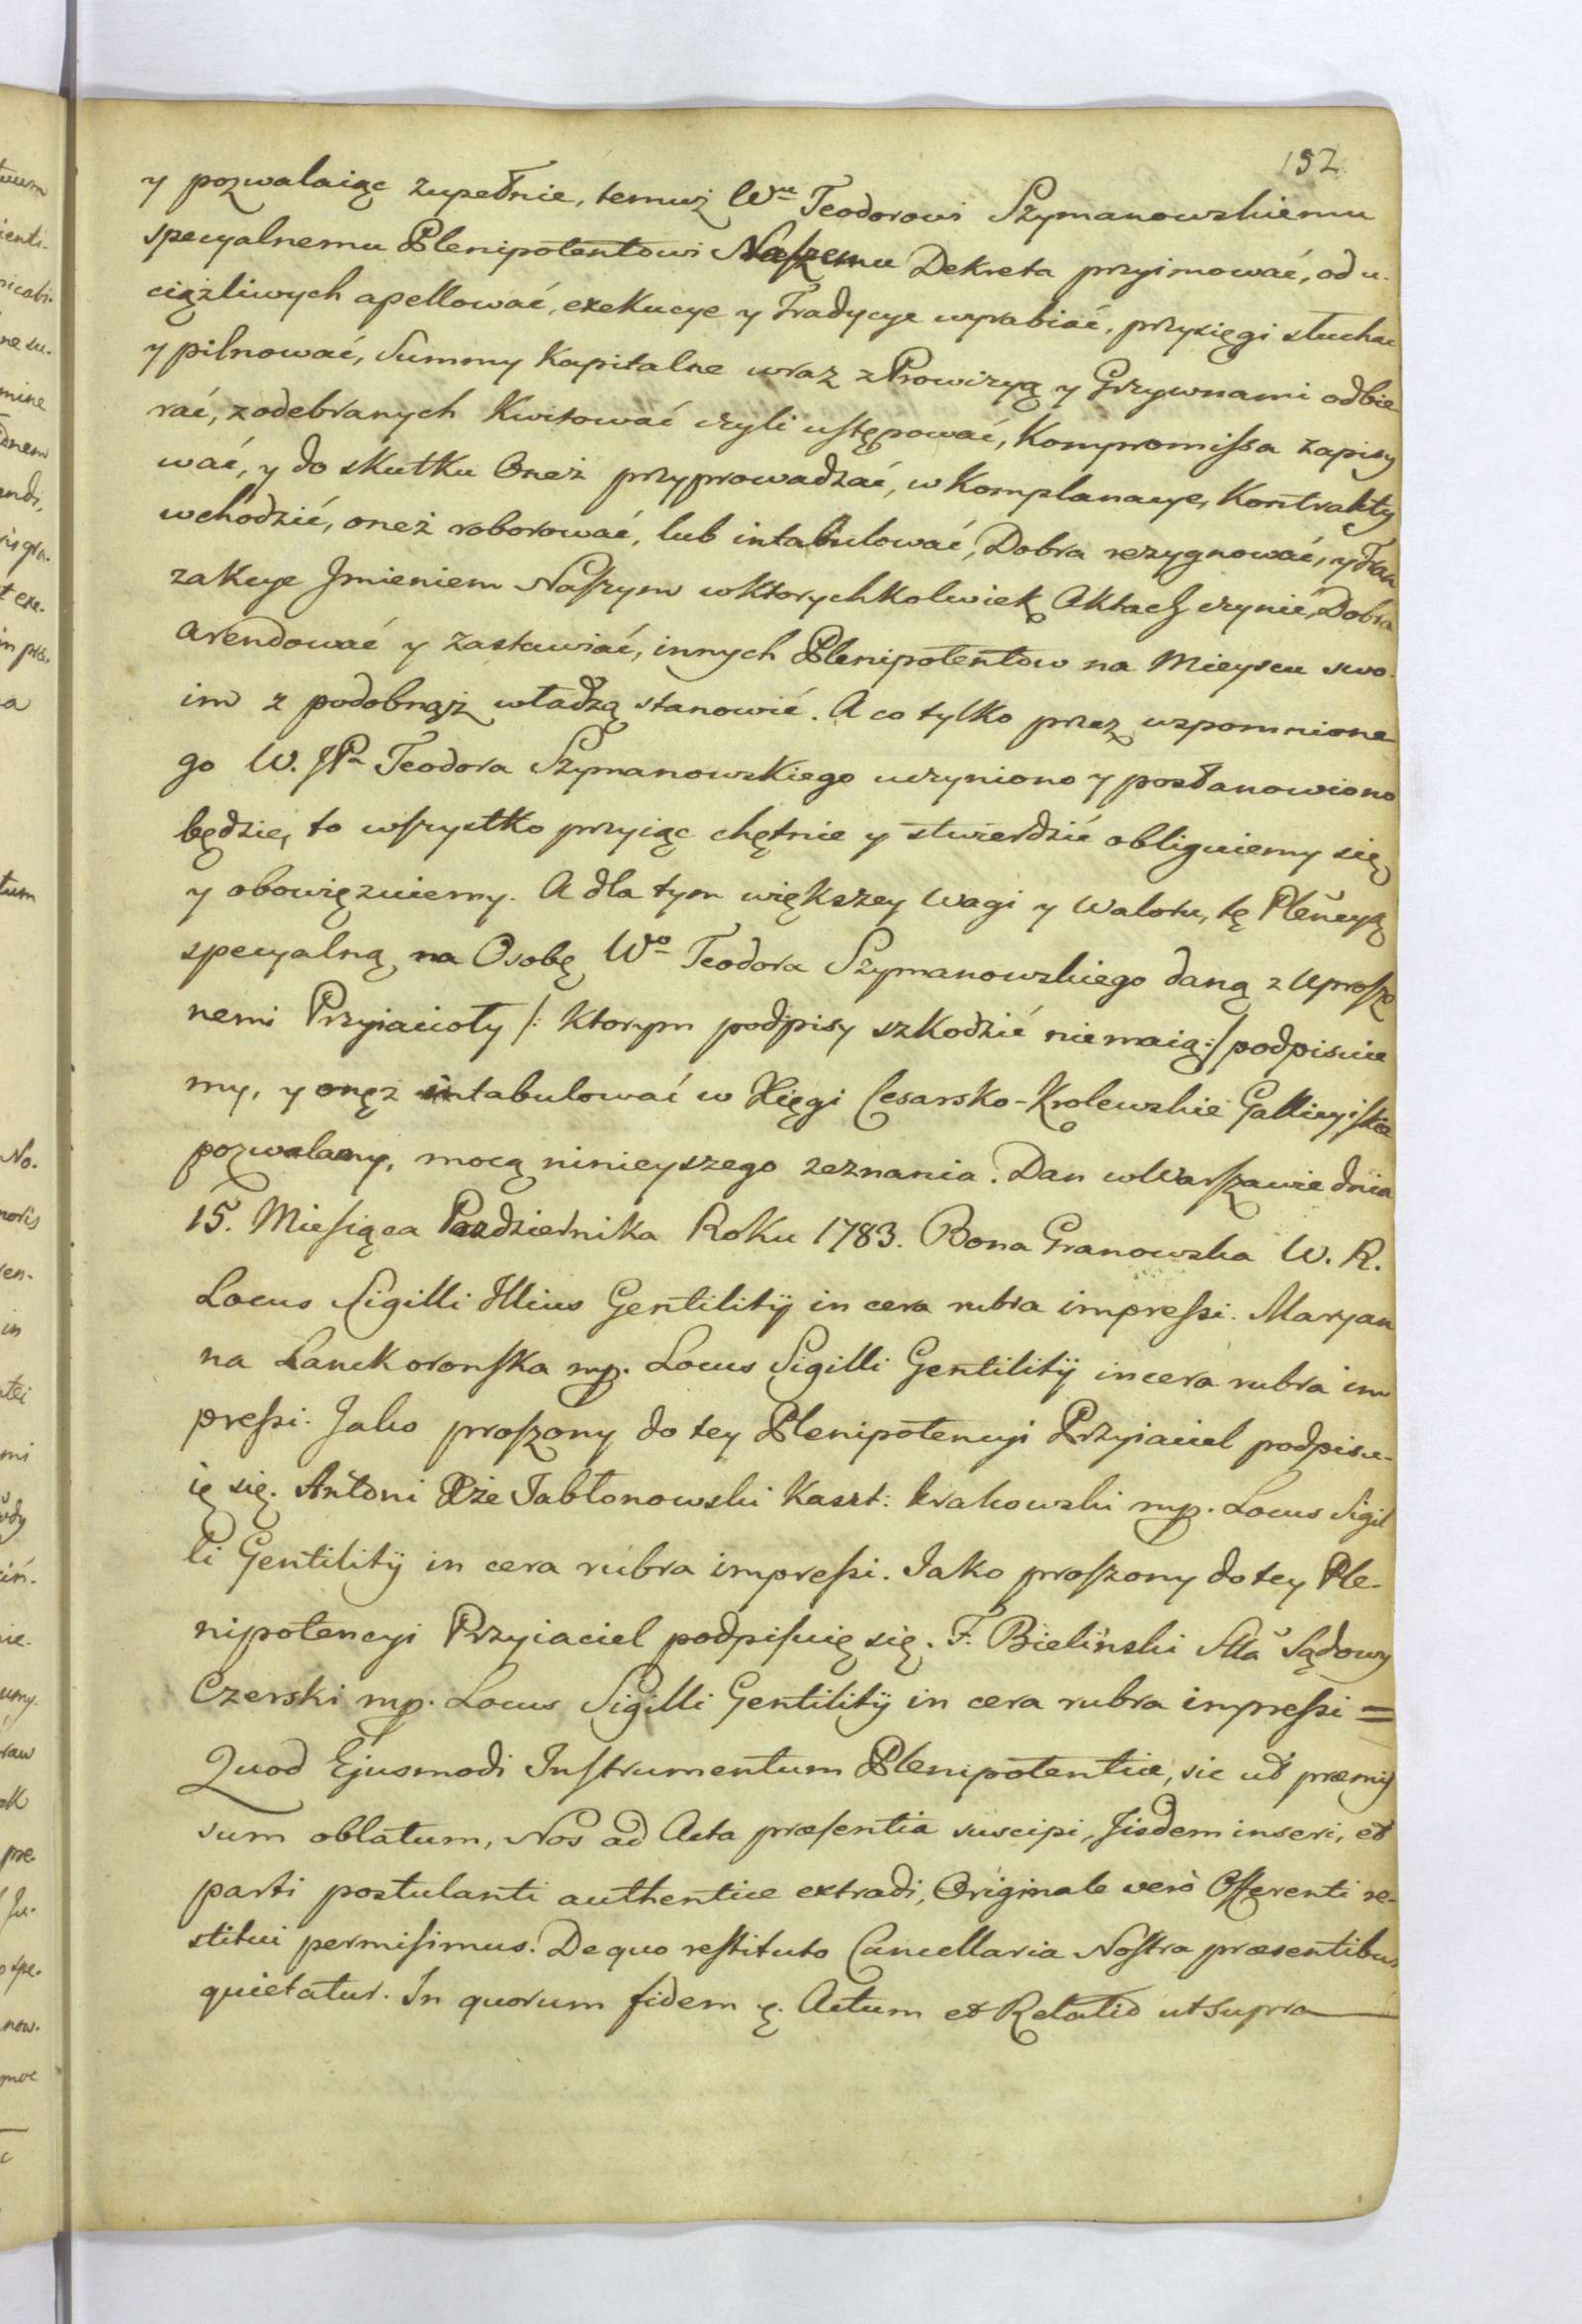 192.
y pozwalaiąc zupełnie, temuż Wu Teodorowi Szymanowskiemu
specyalnemu Plenipotentowi Naszemu Dekreta przyimować, od u-
ciążliwych apellować, exekucye y Tradycye wyrabiać, przysięgi słuchac
y pilnować, Summy Kapitalne wraz z Prowizyą y Grzywnami odbie
rać, z odebranych Kwitować czyli ustępować, Kompromissa zapisy
wać, y do skutku Oneż przyprowadzać, w Komplanacye, Kontrakty
wchodzić, oneż roborować, lub intabulować, Dobra rezygnować, y Tran
zakcye Jmieniem Naszym w ktorychkolwiek Aktach czynić, Dobra
arendować y zastawiać, innych Plenipotentow na Mieyscu swo
im z podobnąż władzą stanowić. A co tylko przez wspomnione
go W. JPa Teodora Szymanowskiego uczyniono y postanowiono
będzie, to wszystko przyiąc chętnie y stwierdzić obliguiemy się
y obowięzuiemy. A dla tym większey wagi y waloru, tę Pleńcyą
specyalną na Osobę Wo Teodora Szymanowskiego daną z uprosze
nemi Przyiacioły /: ktorym podpisy szkodzić niemaią :/ podpisuie
my, y onęż intabulować w Xięgi Cesarsko-Krolewskie Galliciyskie
pozwalamy, mocą ninieyszego zeznania. Dan w Warszawie dnia
15. Miesiąca Pazdziernika Roku 1783. Bona Granowska W. R.
Locus Sigilli Illius Gentilitij in cera rubra impressi. Maryan
na Lanckoronska mp. Locus Sigilli Gentilitij in cera rubra im
pressi. Jako proszony do tey Plenipotencyi Przyiaciel podpisu-
ię się. Antoni Xże Jabłonowski Kaszt: krakowski mp. Locus Sigil
li Gentilitij in cera rubra impressi. Jako proszony do tey Ple-
nipotencyi Przyiaciel podpisuię się. F. Bielinski Stta Sądowy
Czerski mp. Locus Sigilli Gentilitij in cera rubra impressi =
Quod Ejusmodi Instrumentum Plenipotentiae, sic ut praemis
sum oblatum, Nos ad Acta praesentia suscipi, Jisdem inseri, et
parti postulanti authentice extradi, Originale verò Offerenti re-
stitui permisimus. De quo restituto Cancellaria Nostra praesentibus
quietatur. In quorum fidem &. Actum et Relatio ut supra